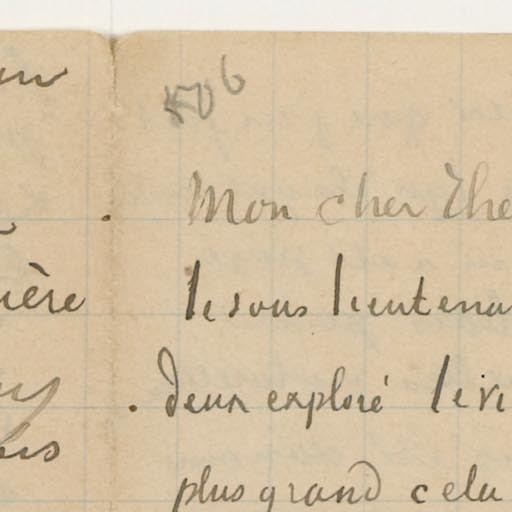 506
Mon cher The
le sous lieutena
deux exploré le vi
plus grand cela